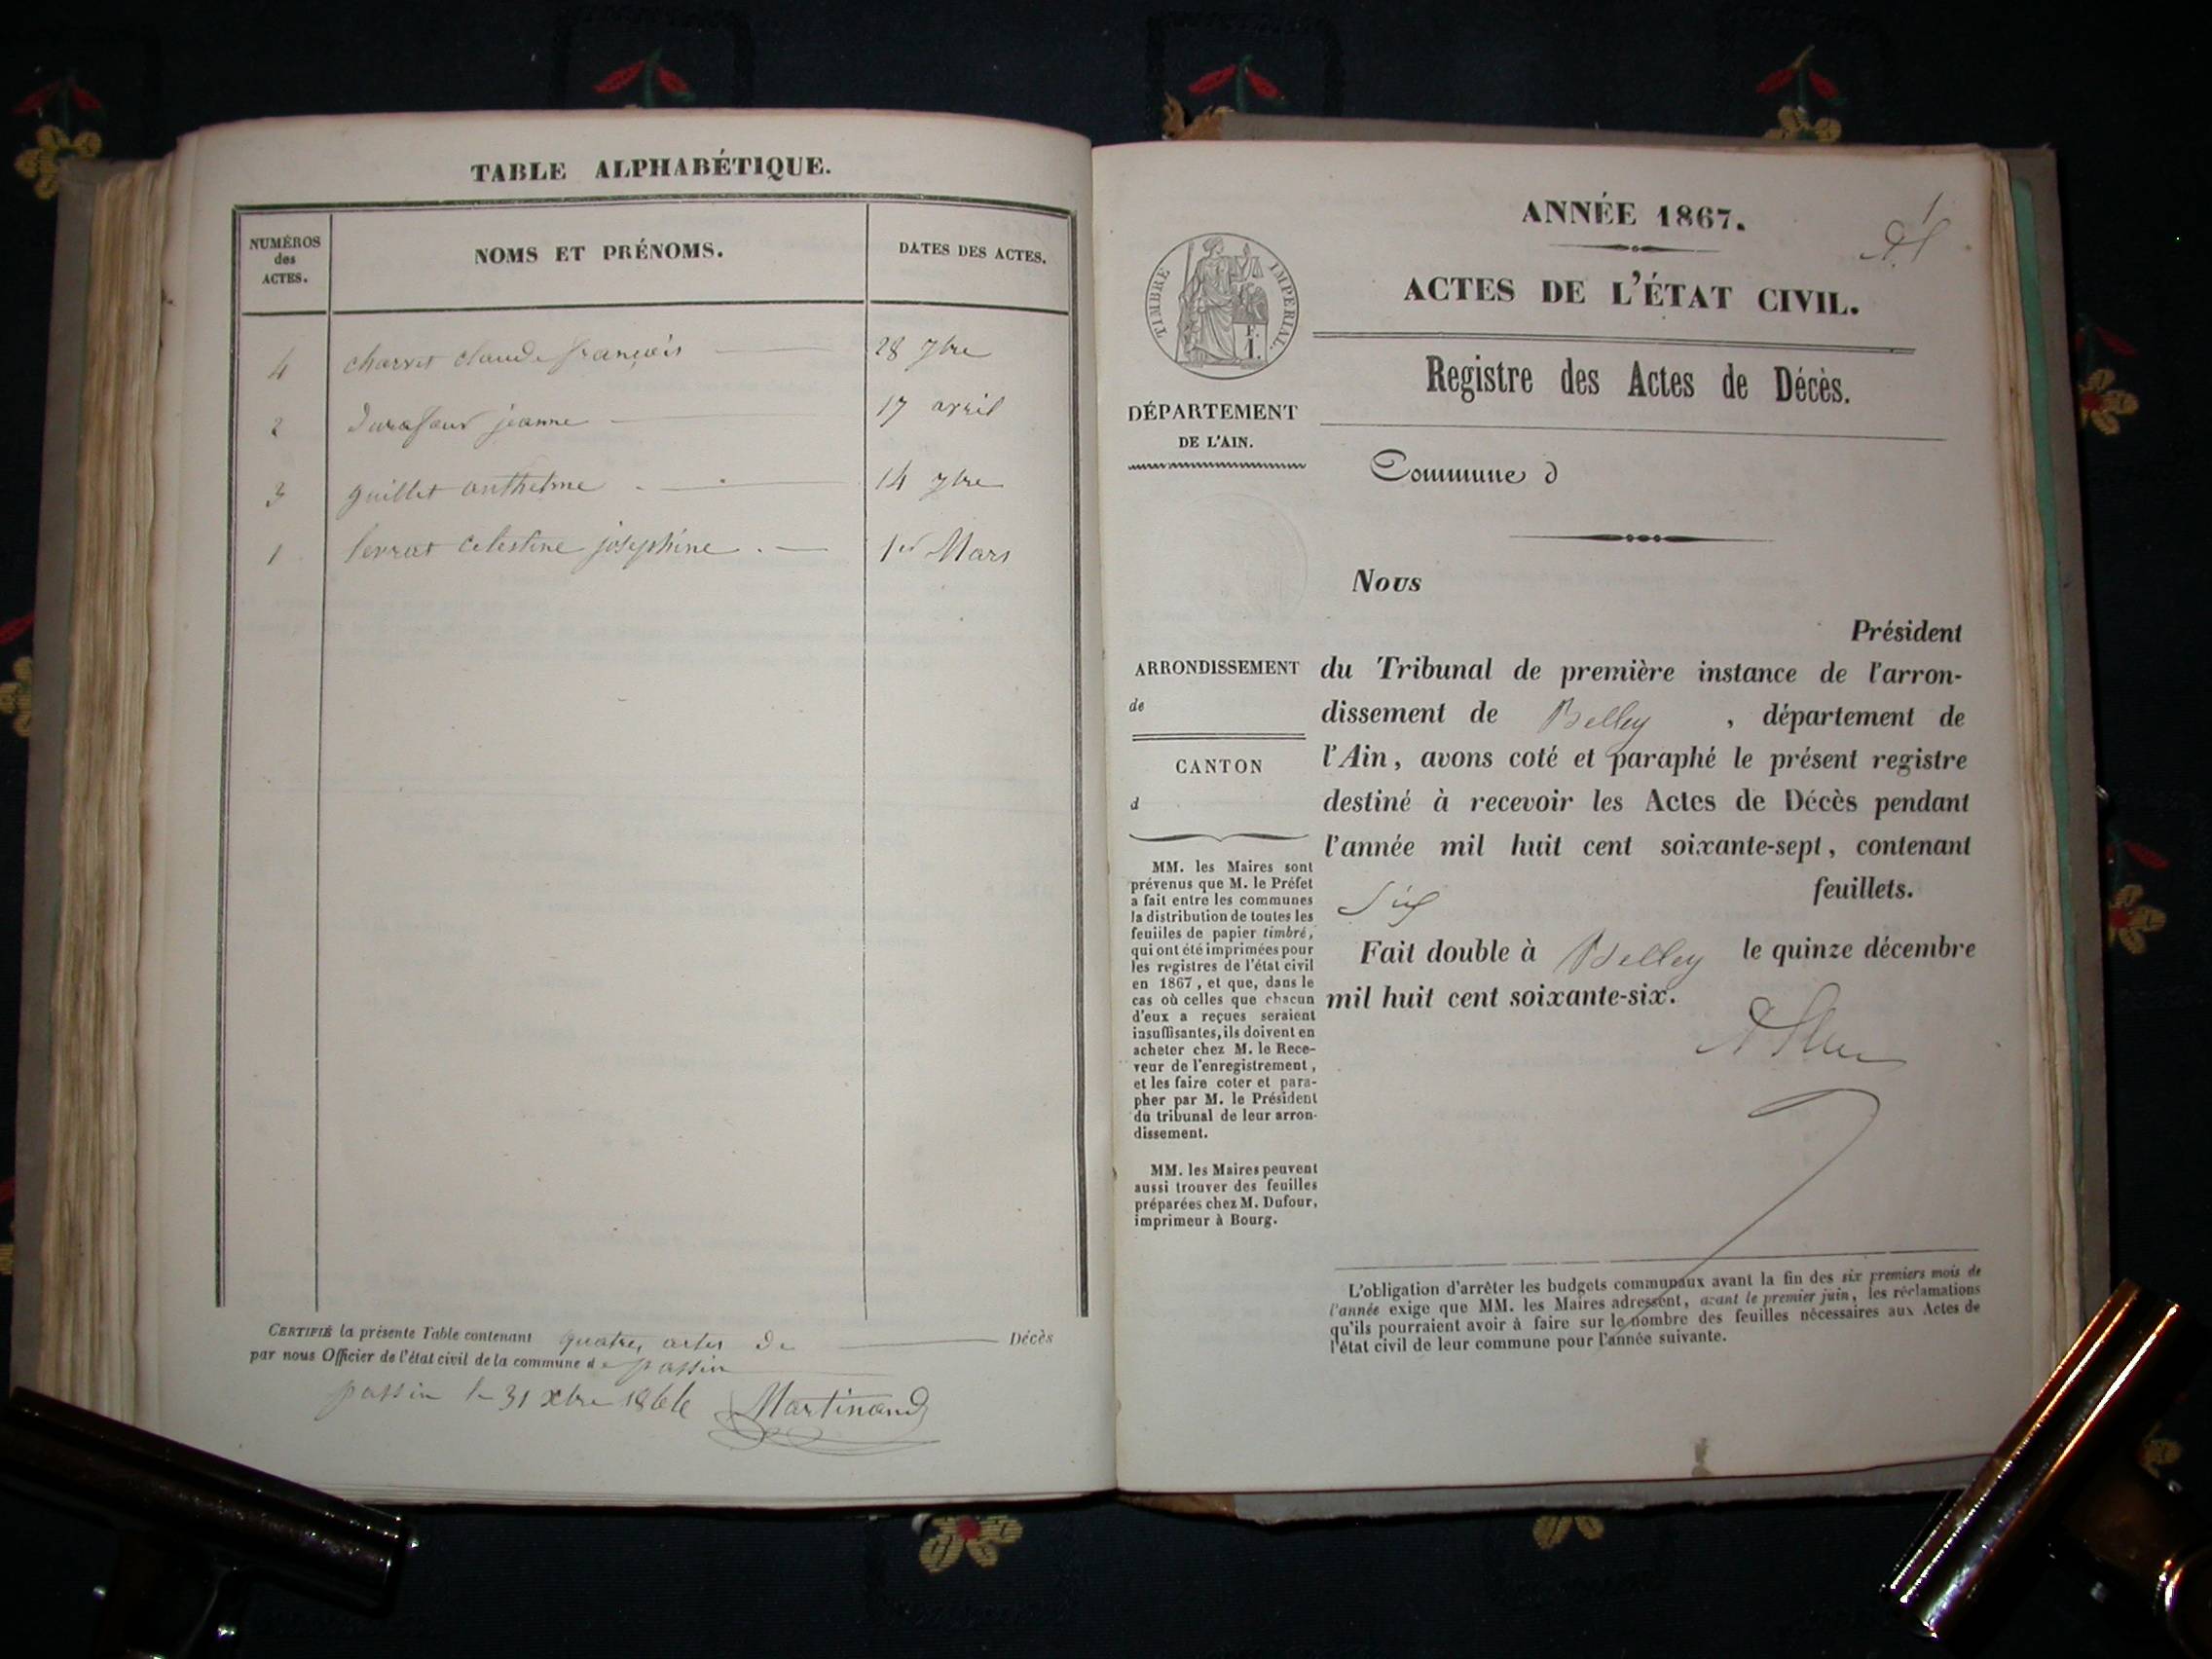 TABLE ALPHABÉTIQUE.
NUMÉROS
des
ACTES.
NOMS ET PRÉNOMS.
DATES DES ACTES.
4 charvet claude françois 28 7bre
2 Durafour jeanne 17 avril
3 guillet anthelme 14 7bre
1 serrat celestine joséphine 1er Mars
CERTIFIÉ la présente Table contenant quatre actes de Décès
par nous Officier de l'état civil de la commune de passin
passin le 31 Xbre 1866 Martinand
1
ANNÉE 1867.
ACTES DE L'ÉTAT CIVIL.
TIMBRE IMPERIAL.
Registre des Actes de Décès.
DÉPARTEMENT
DE L'AIN.
Commune d
Nous
Président
ARRONDISSEMENT
de
CANTON
d
du Tribunal de première instance de l'arron-
dissement de Belley , département de
l'Ain, avons coté et paraphé le présent registre
destiné à recevoir les Actes de Décès pendant
l'année mil huit cent soixante-sept, contenant
Six feuillets.
Fait double à Belley le quinze décembre
mil huit cent soixante-six.
MM. les Maires sont
prévenus que M. le Préfet
a fait entre les communes
la distribution de toutes les
feuilles de papier timbré,
qui ont été imprimées pour
les registres de l'état civil
en 1867, et que, dans le
cas où celles que chacun
d'eux a reçues seraient
insuffisantes, ils doivent en
acheter chez M. le Rece-
veur de l'enregistrement,
et les faire coter et para-
pher par M. le Président
du tribunal de leur arron-
dissement.
MM. les Maires peuvent
aussi trouver des feuilles
préparées chez M. Dufour,
imprimeur à Bourg.
L'obligation d'arrêter les budgets communaux avant la fin des six premiers mois de
l'année exige que MM. les Maires adressent, avant le premier juin, les réclamations
qu'ils pourraient avoir à faire sur le nombre des feuilles nécessaires aux Actes de
l'état civil de leur commune pour l'année suivante.